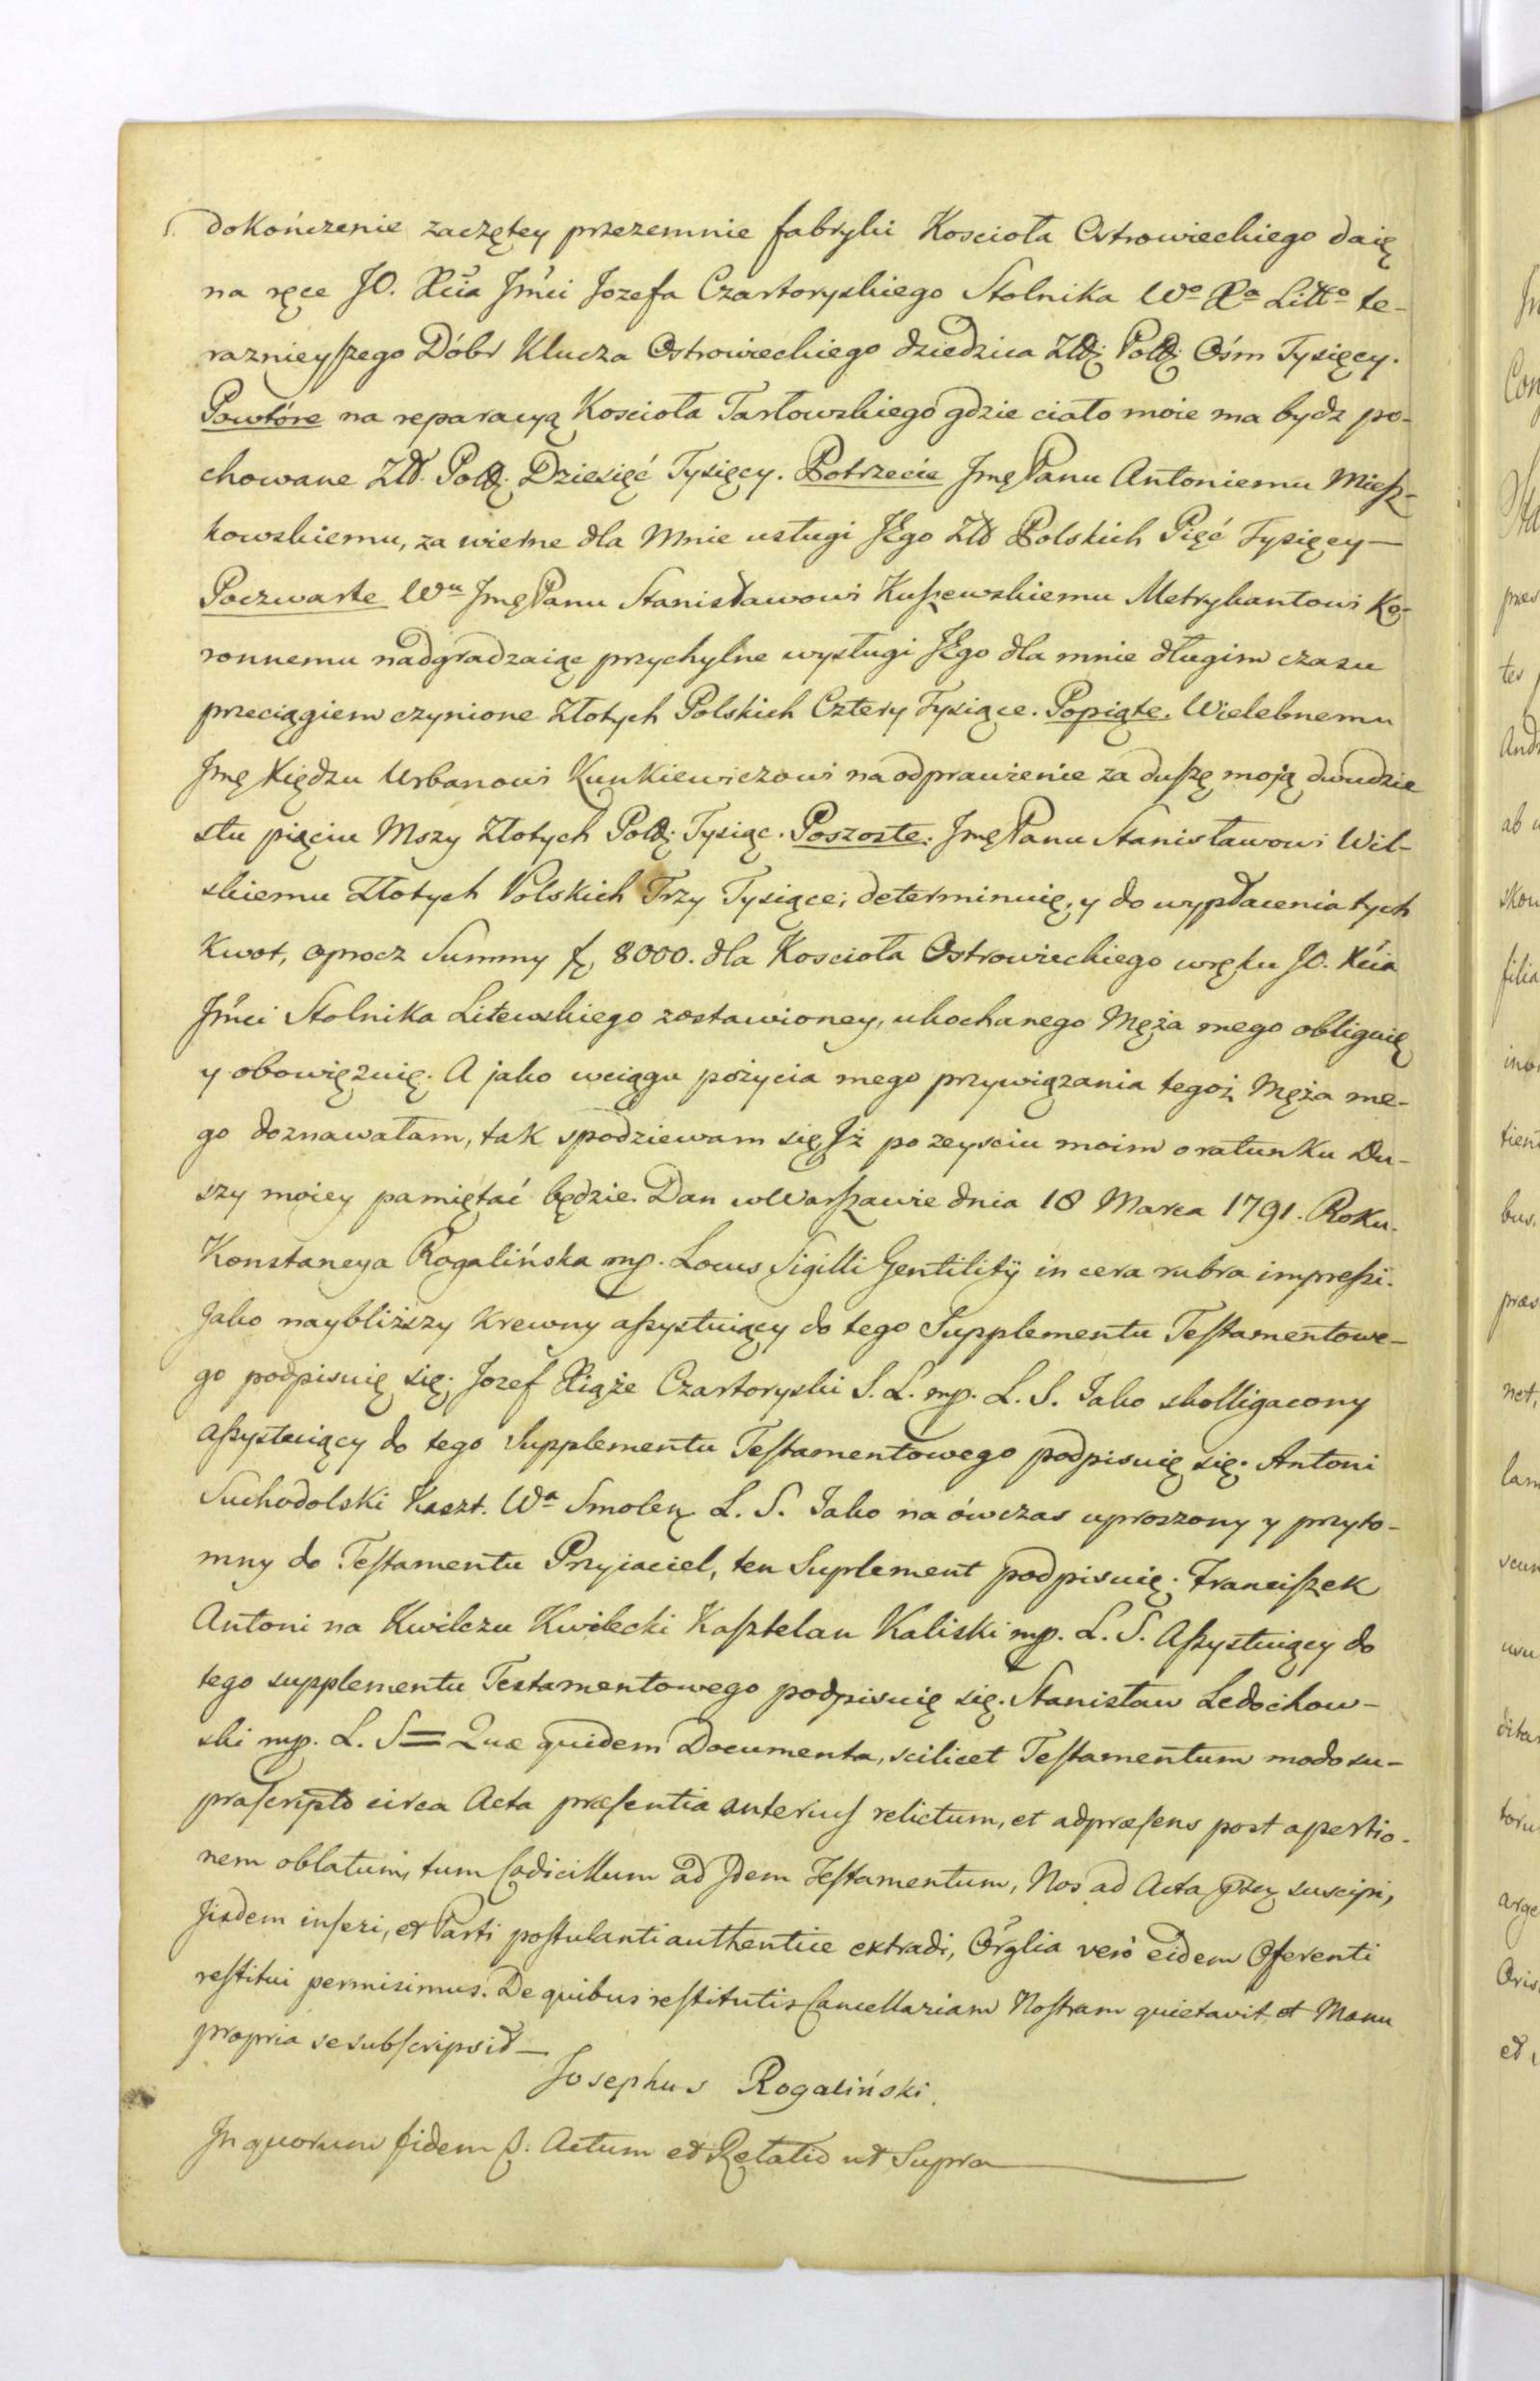 dokończenie zaczętey przezemnie fabryki Koscioła Ostrowieckiego daię
na ręce JO. Xcia Jmci Jozefa Czartoryskiego Stolnika Wo Xa Litto te-
raznieyszego Dóbr Klucza Ostrowieckiego dziedzica Złł: Poll: Ośm Tysięcy.
Powtóre na reparacyą Koscioła Tarłowskiego gdzie ciało moie ma bydz po-
chowane Złł. Poll: Dziesięć Tysięcy. Potrzecie Jmę Panu Antoniemu Miesz-
kowskiemu, za wierne dla Mnie usługi JEgo Złł Polskich Pięć Tysięcy —
Poczwarte Wu Jmę Panu Stanisławowi Kuszewskiemu Metrykantowi Ko-
ronnemu nadgradzaiąc przychylne wysługi JEgo dla mnie długim czasu
przeciągiem czynione Złotych Polskich Cztery Tysiące. Popiąte. Wielebnemu
Jmę Xiędzu Urbanowi Kunkiewiczowi na odprawienie za duszę moją dwudzie
stu pięciu Mszy Złotych Poll: Tysiąc. Poszoste. Jmę Panu Stanisławowi Wil-
skiemu Złotych Polskich Trzy Tysiące; determinuię, y do wypłacenia tych
Kwot, oprocz Summy f, 8000. dla Koscioła Ostrowieckiego wręku JO. Xcia
Jmci Stolnika Litewskiego zostawioney, ukochanego Męża mego obliguię
y obowięzuię. A jako wciągu pożycia mego przywiązania tegoż Męża me-
go doznawałam, tak spodziewam się, Jż po zeysciu moim o ratunku Du-
szy moiey pamiętać będzie. Dan w Warszawie dnia 18 Marca 1791. Roku.
Konstancya Rogalińska mp. Locus Sigilli Gentilitÿ in cera rubra impressi.
Jako naybliższy Krewny assystuiący do tego Supplementu Testamentowe-
go podpisuię się; Jozef Xiąże Czartoryski S. L. mp. L. S. Jako skolligacony
assystuiący do tego Supplementu Testamentowego podpisuię się. Antoni
Suchodolski Kaszt. Wa Smolen L. S. Jako na ówczas uproszony y przyto-
mny do Testamentu Przyiaciel, ten Suplement podpisuię. Franciszek
Antoni na Kwilczu Kwilecki Kasztelan Kaliski mp. L. S. Assystuiący do
tego supplementu Testamentowego podpisuię się. Stanisław Ledochow-
ski mp. L. S = Quæ quidem Documenta, scilicet Testamentum modo su-
prascripto circa Acta præsentia anterius relictum, et adpræsens post apertio-
nem oblatum, tum Codicillum ad Jdem Testamentum, Nos ad Acta suscipi,
Jisdem inseri, et Parti postulanti authentice extradi, Orglia verò eidem Oferenti
restitui permisimus. De quibus restitutis Cancellariam Nostram quietavit, et Manu
propria se subscripsit —
Josephus Rogaliński.
Jn quorum fidem &. Actum et Relatio ut Supra